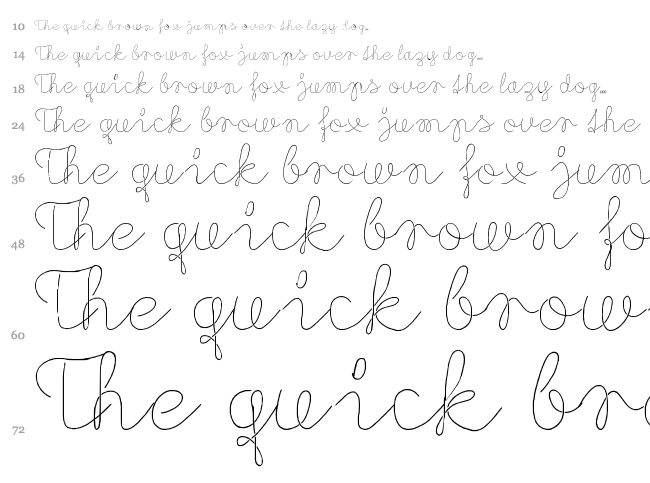 10 The quick brown fox jumps over the lazy dog.
14 The quick brown fox jumps over the lazy dog...
18 The quick brown fox jumps over the lazy dog...
24 The quick brown fox jumps over the
36 The quick brown fox jum
48 The quick brown fo
60 The quick brow
72 The quick bro